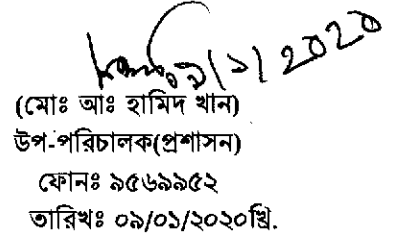 ০৯/১/২০২০
(মোঃ আঃ হামিদ খান)
উপ-পরিচালক(প্রশাসন)
ফোনঃ ৯৫৬৯৯৫২
তারিখঃ ০৯/০১/২০২০খ্রি.